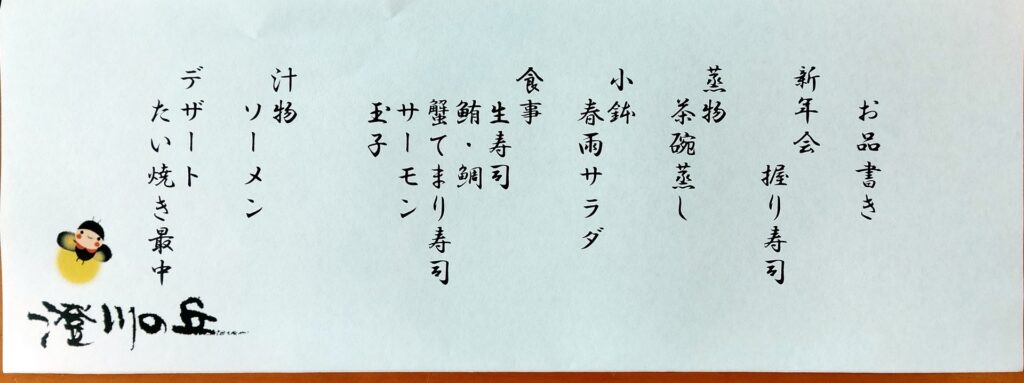 お品書き
新年会
握り寿司
蒸物
茶碗蒸し
小鉢
春雨サラダ
食事
生寿司
鮪・鯛
蟹てまり寿司
サーモン
玉子
汁物
ソーメン
デザート
たい焼き最中
澄川の丘